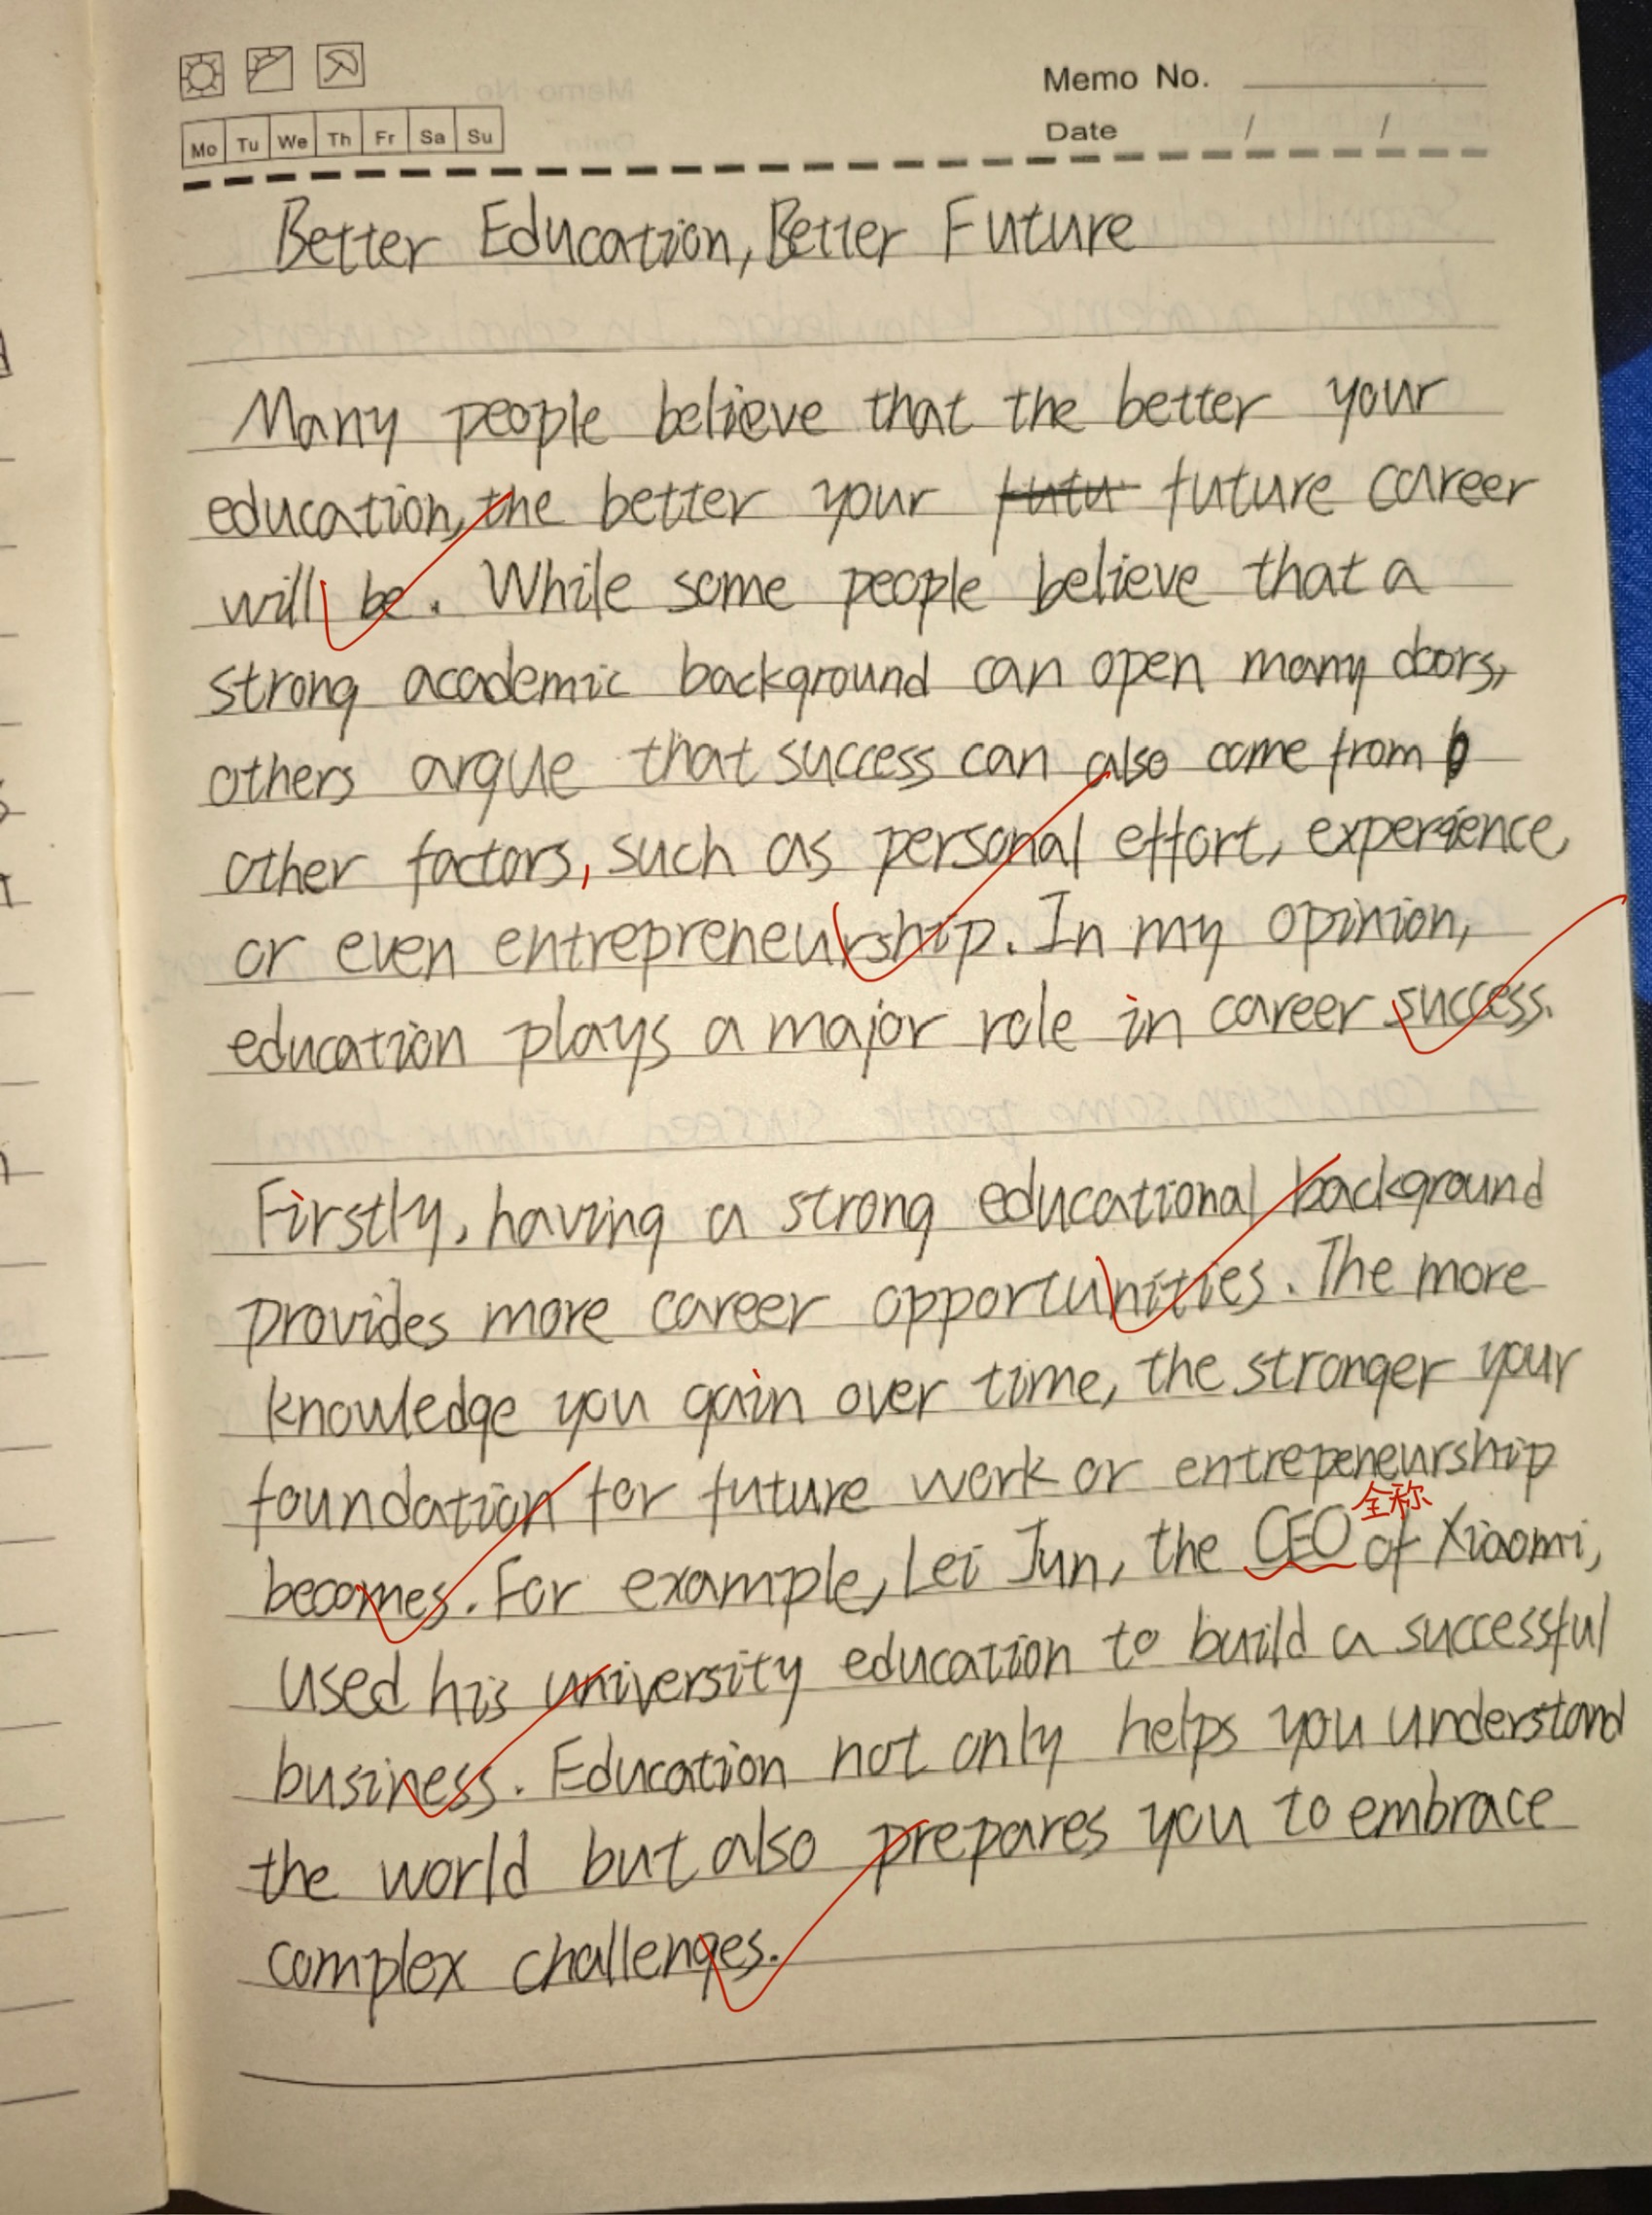 Memo No.
Mo Tu We Th Fr Sa Su
Date / /
Better Education, Better Future
Many people believe that the better your
education, the better your futu future career
will be. While some people believe that a
strong academic background can open many doors,
others argue that success can also come from
other factors, such as personal effort, experience,
or even entrepreneurship. In my opinion,
education plays a major role in career success.
Firstly, having a strong educational background
provides more career opportunities. The more
knowledge you gain over time, the stronger your
foundation for future work or entrepeneurship
全称
becomes. For example, Lei Jun, the CEO of Xiaomi,
used his university education to build a successful
business. Education not only helps you understand
the world but also prepares you to embrace
complex challenges.